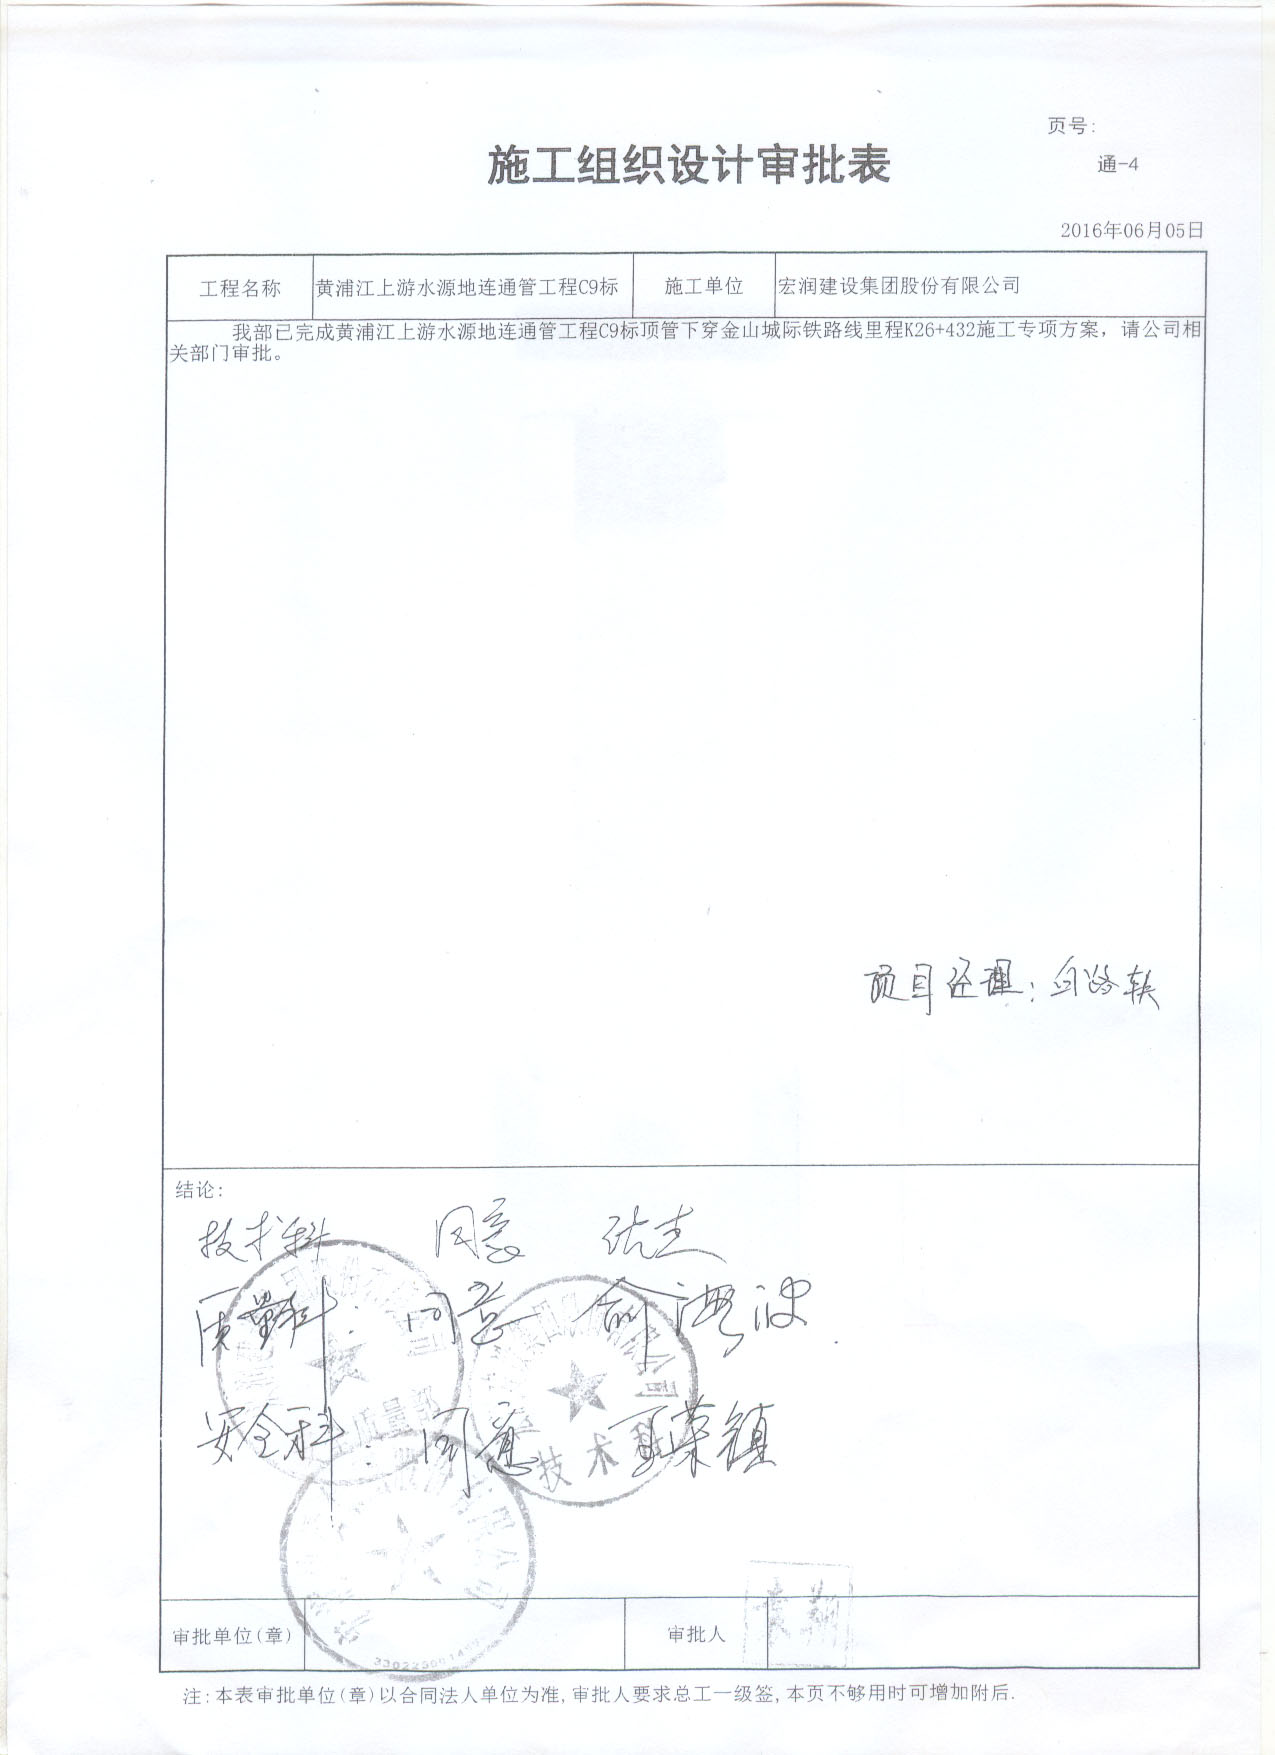 页号:
施工组织设计审批表
通-4
2016年06月05日
工程名称 黄浦江上游水源地连通管工程C9标 施工单位 宏润建设集团股份有限公司
我部已完成黄浦江上游水源地连通管工程C9标顶管下穿金山城际铁路线里程K26+432施工专项方案，请公司相
关部门审批。
项目经理：
结论:
技术科 同意
质量科: 同意
安全科: 同意
质量部
技术科
审批单位(章) 审批人
注:本表审批单位(章)以合同法人单位为准,审批人要求总工一级签,本页不够用时可增加附后.